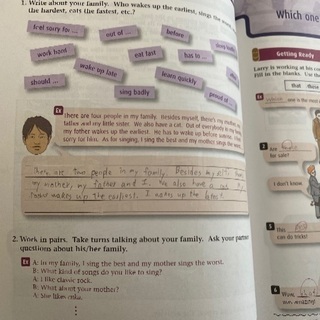 1. Write about your family. Who wakes up the earliest, sings the
the hardest, eats the fastest, etc.?
feel sorry for ...
out of ...
before
work hard
eat fast
has to ...
wake up late
learn quickly
should ...
sing badly
proud of ...
Ex
There are four people in my family. Besides myself, there's my
father and my little sister. We also have a cat. Out of everybody in my
my father wakes up the earliest. He has to wake up before
sorry for him. As for singing, I sing the best and my mother sings the
There are four people in my family. Besides myself,
my mother, my father and I. We also have a
wakes up the earliest. I wakes up the latest
2. Work in pairs. Take turns talking about your family. Ask your partner
questions about his/her family.
Ex A: In my family, I sing the best and my mother sings the worst.
B: What kind of songs do you like to sing?
A: I like classic rock.
B: What about your mother?
A: She likes
Which one
Getting Ready
Larry is working at his
Fill in the blanks. Use the
that
Ex
one is the most
2 Are
for sale?
I don't know.
5 This
can do tricks!
6 Wow,
am amazing!